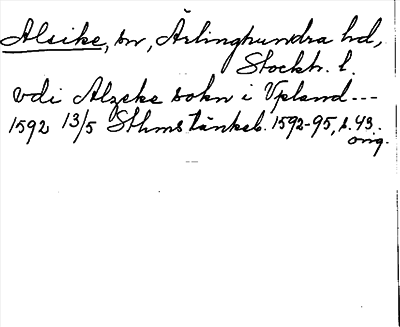 Alsike, sn, Ärlinghundra hd,
Stockh. l.
vdi Alzeke sokn i Vpland ---
1592 13/5 Sthms tänkeb. 1592-95, s. 43.
orig.